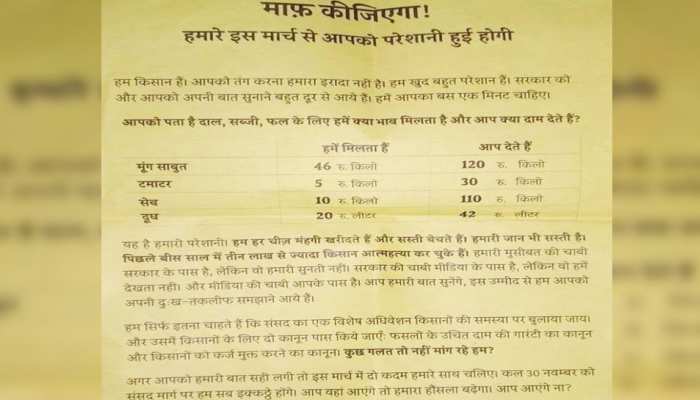 माफ़ कीजिएगा!
हमारे इस मार्च से आपको परेशानी हुई होगी
हम किसान हैं। आपको तंग करना हमारा इरादा नहीं है। हम खुद बहुत परेशान हैं। सरकार को
और आपको अपनी बात सुनाने बहुत दूर से आये हैं। हमें आपका बस एक मिनट चाहिए।
आपको पता है दाल, सब्जी, फल के लिए हमें क्या भाव मिलता है और आप क्या दाम देते हैं?
हमें मिलता हैं आप देते हैं
मूंग साबुत 46 रु. किलो 120 रु. किलो
टमाटर 5 रु. किलो 30 रु. किलो
सेब 10 रु. किलो 110 रु. किलो
दूध 20 रु. लीटर 42 रु. लीटर
यह है हमारी परेशानी। हम हर चीज़ मंहगी खरीदते हैं और सस्ती बेचते हैं। हमारी जान भी सस्ती है।
पिछले बीस साल में तीन लाख से ज्यादा किसान आत्महत्या कर चुके हैं। हमारी मुसीबत की चाबी
सरकार के पास है, लेकिन वो हमारी सुनती नहीं। सरकार की चाबी मीडिया के पास है, लेकिन वो हमें
देखता नहीं। और मीडिया की चाबी आपके पास है। आप हमारी बात सुनेंगे, इस उम्मीद से हम आपको
अपनी दुःख-तकलीफ समझाने आये हैं।
हम सिर्फ इतना चाहते हैं कि संसद का एक विशेष अधिवेशन किसानों की समस्या पर बुलाया जाय।
और उसमें किसानों के लिए दो कानून पास किये जाएँ: फसलों के उचित दाम की गारंटी का कानून
और किसानों को कर्ज मुक्त करने का कानून। कुछ गलत तो नहीं मांग रहे हम?
अगर आपको हमारी बात सही लगी तो इस मार्च में दो कदम हमारे साथ चलिए। कल 30 नवम्बर को
संसद मार्ग पर हम सब इक्कठ्ठे होंगे। आप वहां आएंगे तो हमारा हौसला बढ़ेगा। आप आएंगे ना?